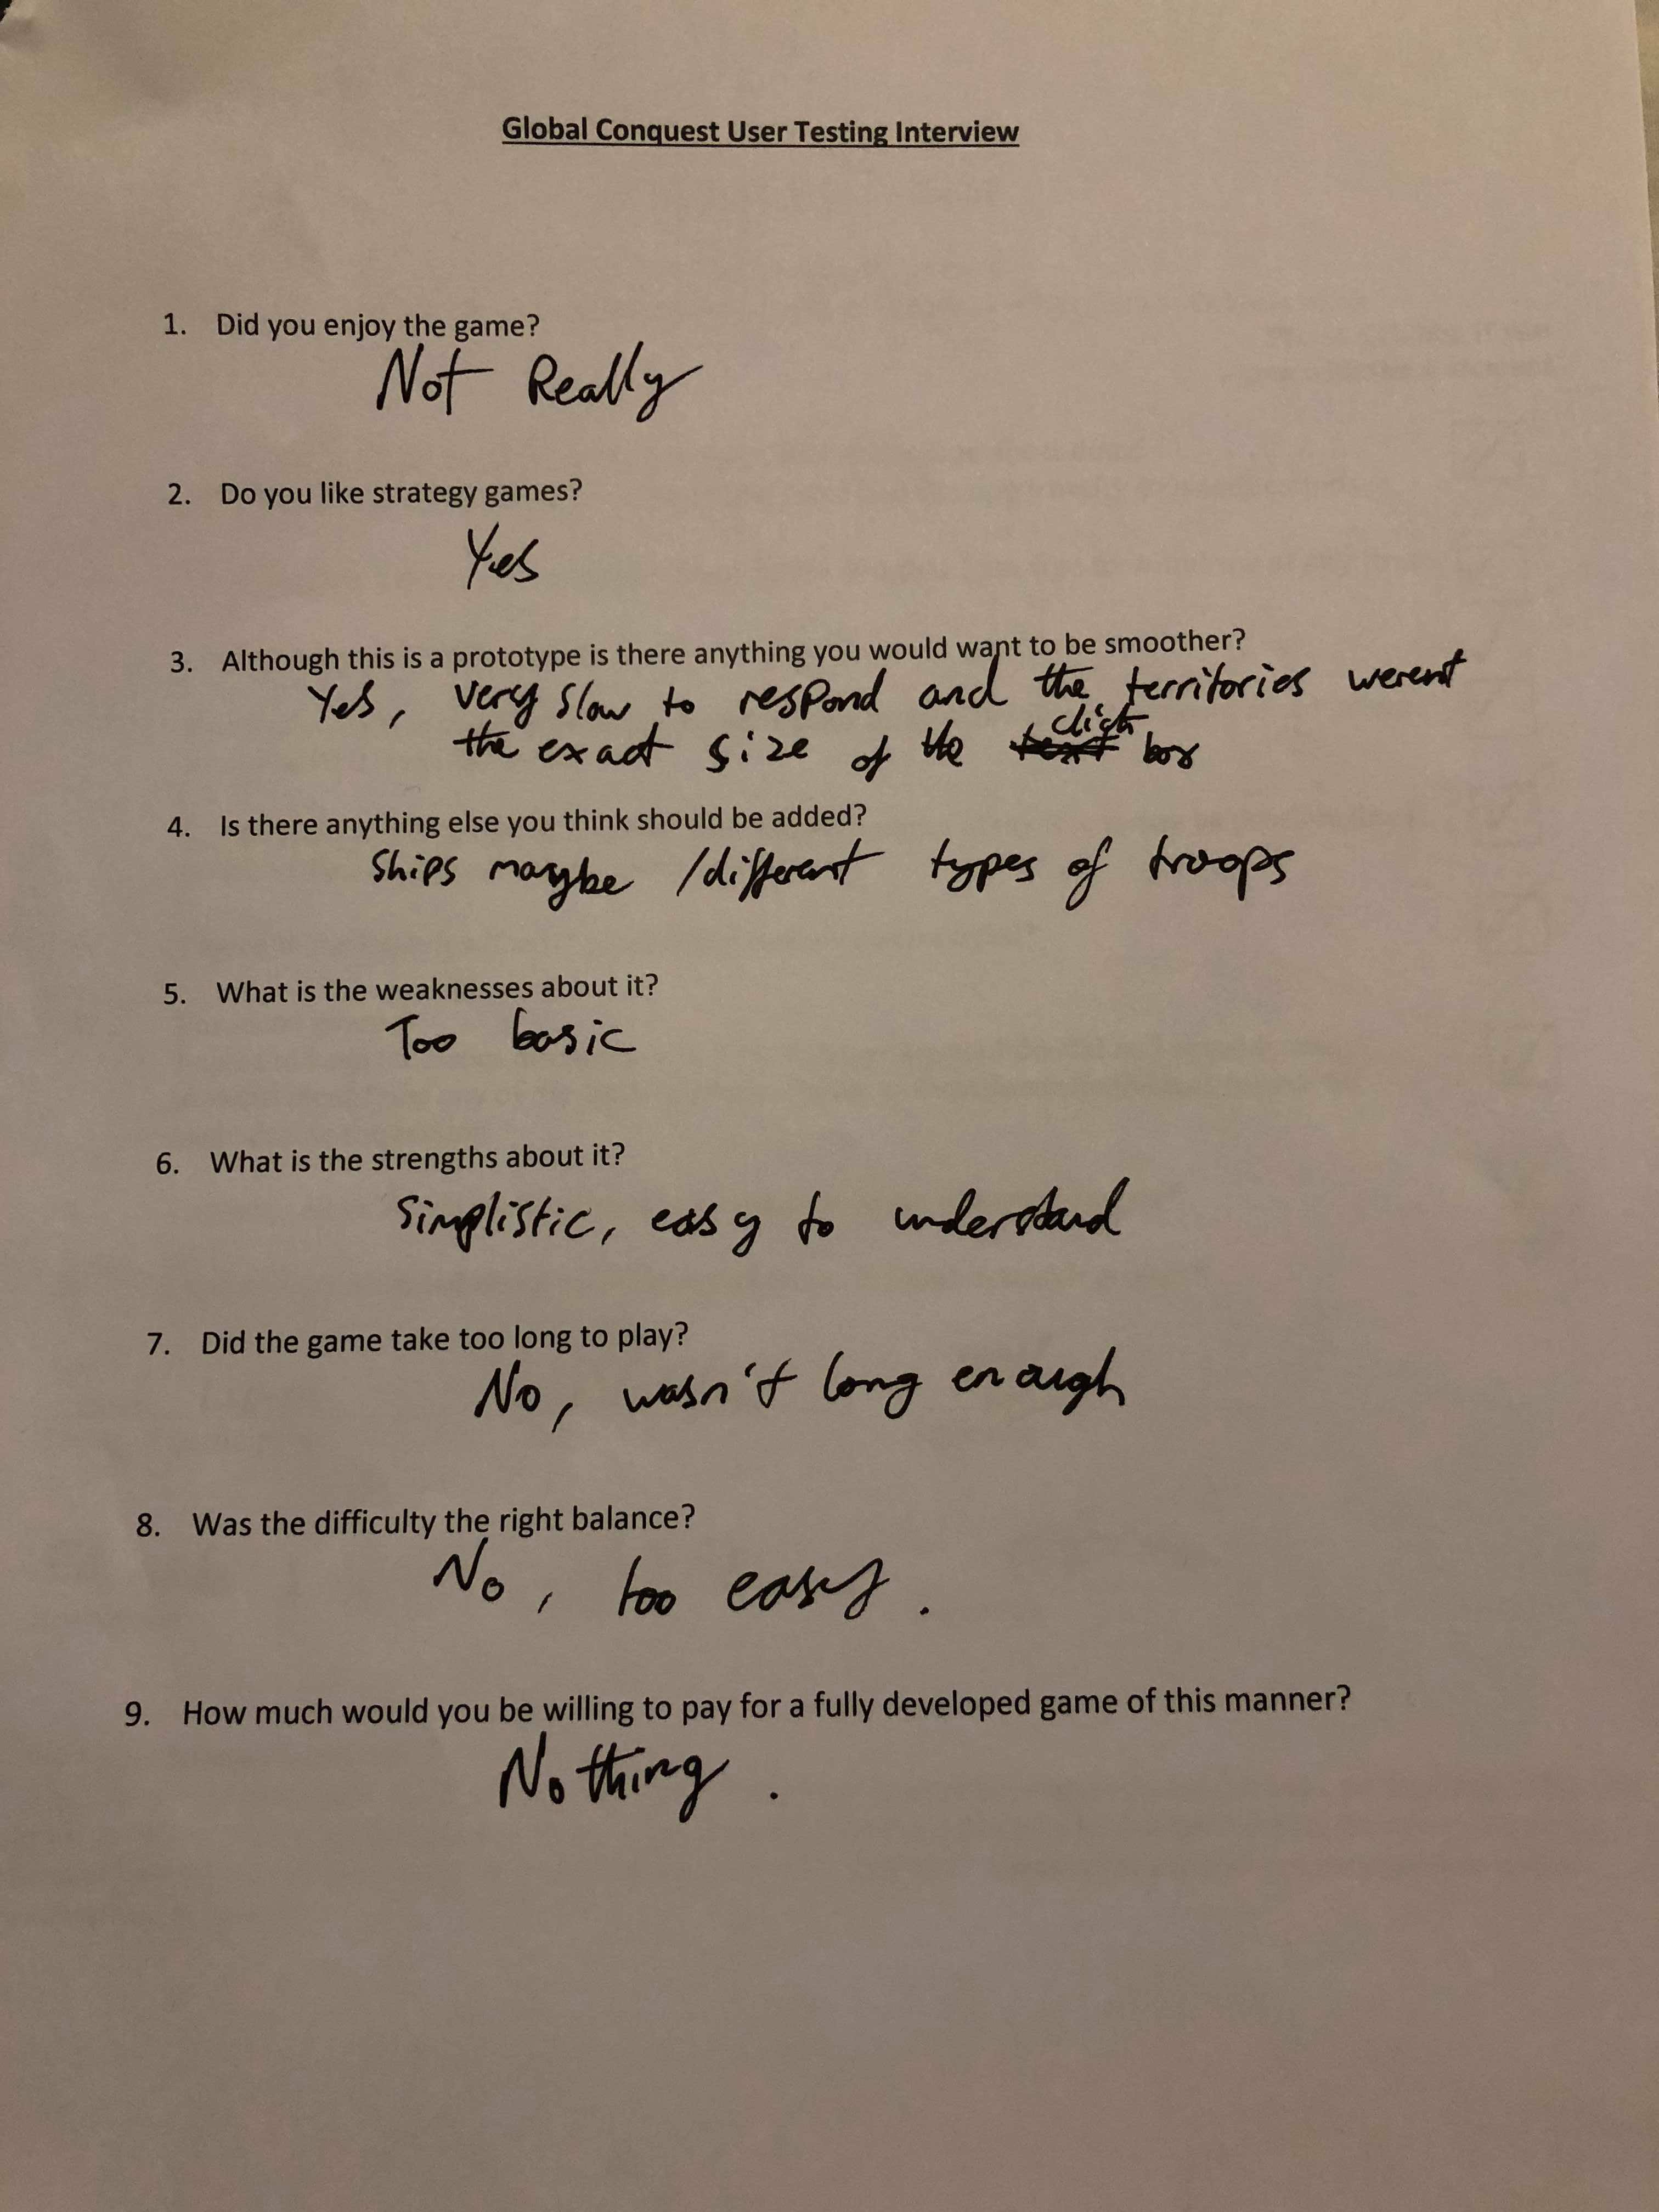 Global Conquest User Testing Interview
1. Did you enjoy the game?
Not Really
2. Do you like strategy games?
Yes
3. Although this is a prototype is there anything you would want to be smoother?
Yes, very slow to respond and the territories werent
the exact size of the click box
4. Is there anything else you think should be added?
Ships maybe /different types of troops
5. What is the weaknesses about it?
Too basic
6. What is the strengths about it?
Simplistic, easy to understand
7. Did the game take too long to play?
No, wasn't long enough
8. Was the difficulty the right balance?
No, too easy.
9. How much would you be willing to pay for a fully developed game of this manner?
Nothing.